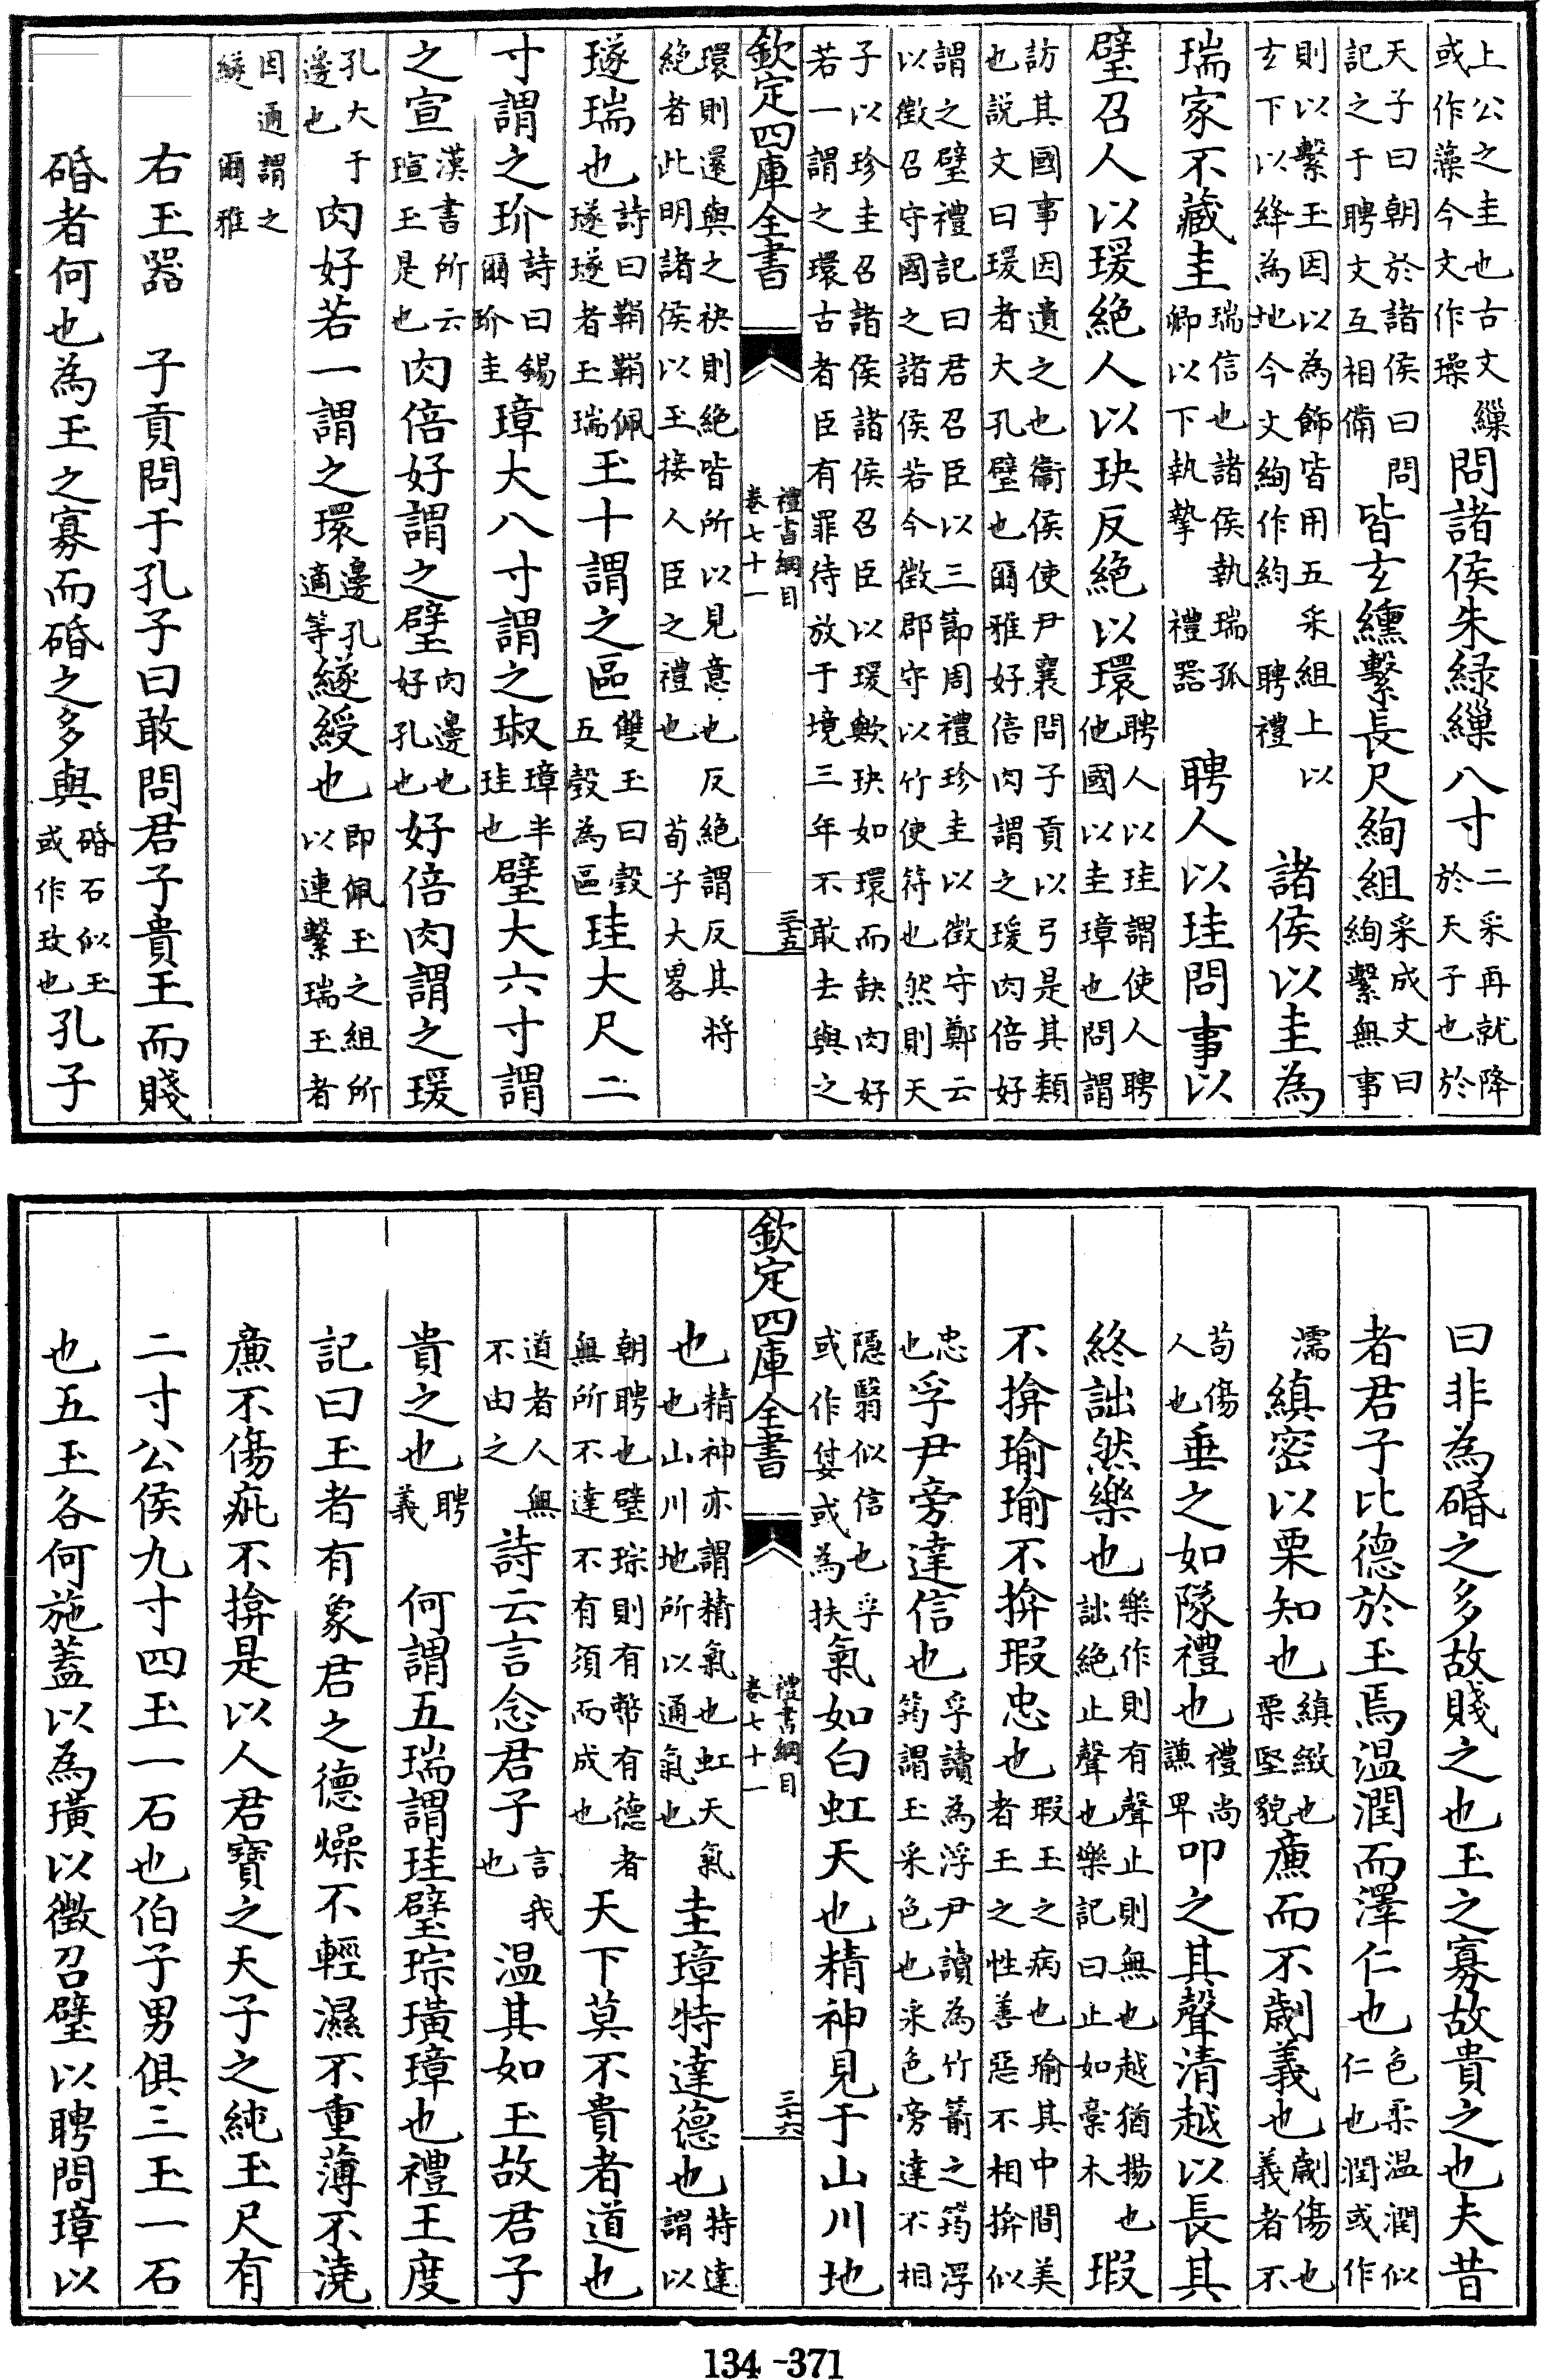 上公之圭也古文繅或作藻今文作璪問諸侯朱緑繅八寸二采再就降於天子也於
天子曰朝於諸侯曰問記之于聘文互相備皆玄纁繫長尺絢組采成文曰絢繫無事
則以繫玉因以為飾皆用五采組上以玄下以絳為地今文絢作約 聘禮 諸侯以圭為
瑞家不藏圭瑞信也諸侯執瑞孤卿以下執摯 禮器 聘人以珪問事以
璧召人以瑗絶人以玦反絶以環聘人以珪謂使人聘他國以圭璋也問謂
訪其國事因遺之也衞侯使尹襄問子貢以弓是其類也説文曰瑗者大孔璧也爾雅好倍肉謂之瑗肉倍好
謂之璧禮記曰君召臣以三節周禮珍圭以徵守鄭云以徵召守國之諸侯若今徵郡守以竹使符也然則天
子以珍圭召諸侯諸侯召臣以瑗歟玦如環而缺肉好若一謂之環古者臣有罪待放于境三年不敢去與之
欽定四庫全書 禮書綱目 卷七十一 三十五
環則還與之袂則絶皆所以見意也反絶謂反其将絶者此明諸侯以玉接人臣之禮也 荀子大畧
璲瑞也詩曰鞙鞙佩璲璲者玉瑞玉十謂之區雙玉曰瑴五瑴為區珪大尺二
寸謂之玠詩曰錫爾玠圭璋大八寸謂之琡璋半珪也璧大六寸謂
之宣漢書所云瑄玉是也肉倍好謂之璧肉邊也好孔也好倍肉謂之瑗
孔大于邊也肉好若一謂之環邊孔適等繸綬也即佩玉之組所以連繫瑞玉者
因通謂之繸 爾雅
右玉器 子貢問于孔子曰敢問君子貴玉而賤
碈者何也為玉之寡而碈之多與碈石似玉或作玟也孔子
曰非為碈之多故賤之也玉之寡故貴之也夫昔
者君子比德於玉焉温潤而澤仁也色柔温潤似仁也潤或作
濡縝密以栗知也縝緻也栗堅貌亷而不劌義也劌傷也義者不
苟傷人也垂之如隊禮也禮尚謙卑叩之其聲清越以長其
終詘然樂也樂作則有聲止則無也越猶揚也詘絶止聲也樂記曰止如槀木瑕
不揜瑜瑜不揜瑕忠也瑕玉之病也瑜其中間美者玉之性善惡不相揜似
忠也孚尹旁達信也孚讀為浮尹讀為竹箭之筠浮筠謂玉采色也采色旁達不相
隠翳似信也孚或作姇或為扶氣如白虹天也精神見于山川地
欽定四庫全書 禮書綱目 卷七十一 三十六
也精神亦謂精氣也虹天氣也山川地所以通氣也圭璋特達德也特達謂以
朝聘也璧琮則有幣有德者無所不達不有須而成也天下莫不貴者道也
道者人無不由之詩云言念君子言我也温其如玉故君子
貴之也聘義 何謂五瑞謂珪璧琮璜璋也禮王度
記曰玉者有象君之德燥不輕濕不重薄不澆
亷不傷疵不揜是以人君寶之天子之純玉尺有
二寸公侯九寸四玉一石也伯子男俱三玉一石
也五玉各何施蓋以為璜以徵召璧以聘問璋以
134-371